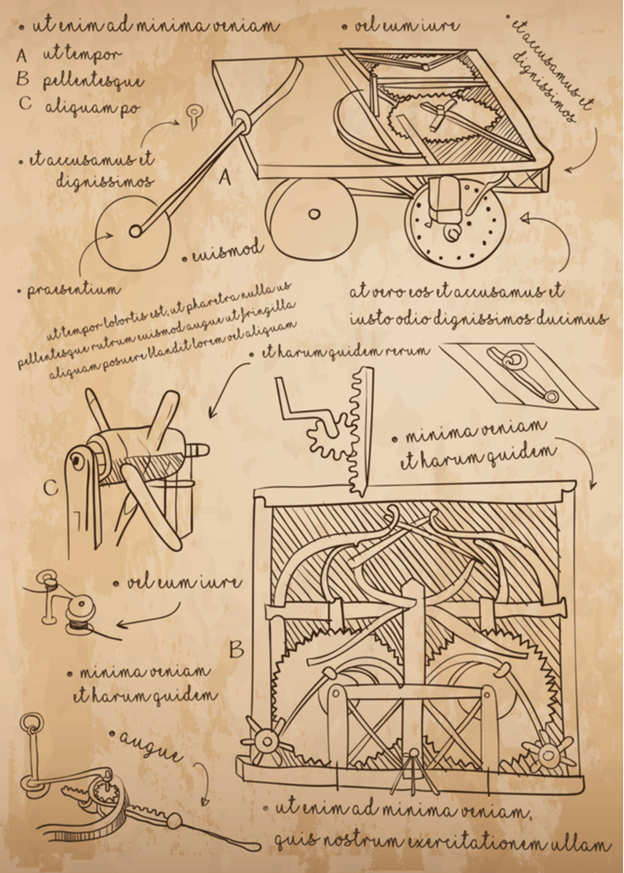 • ut enim ad minima veniam
• vel eum iure
• et accusamus et
dignissimos
A ut tempor
B pellentesque
C aliquam po
• et accusamus et
dignissimos
A
• euismod
• praesentium
ut tempor lobortis est, ut pharetra nulla us
pellentesque rutrum euismod augue ut fringilla
aliquam posuere blandit lorem vel aliquam
at vero eos et accusamus et
iusto odio dignissimos ducimus
• et harum quidem rerum
• minima veniam
et harum quidem
C
• vel eum iure
B
• minima veniam
et harum quidem
• augue
• ut enim ad minima veniam,
quis nostrum exercitationem ullam